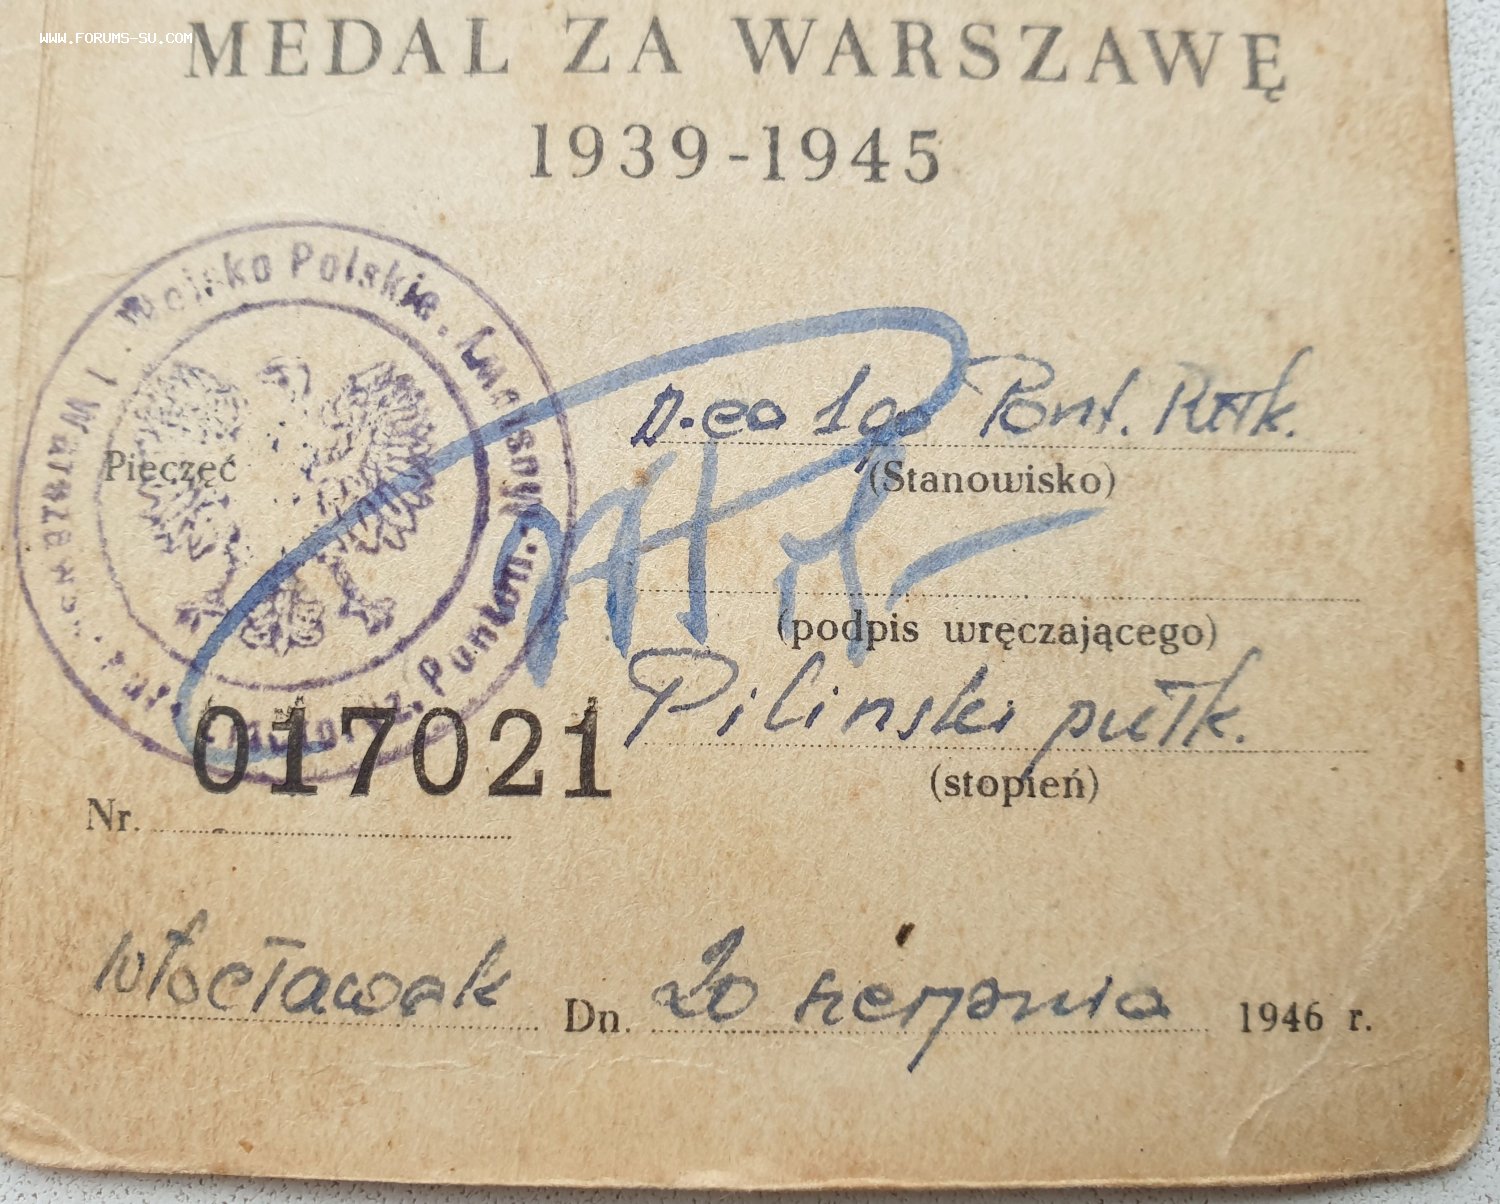 www.forums-su.com
MEDAL ZA WARSZAWĘ
1939-1945
Wojsko Polskie.
Pieczęć
D-ca 1go Pont. Pułk.
(Stanowisko)
(podpis wręczającego)
Pilinski pułk.
(stopień)
017021
Nr.
Włocławek Dn. 20 sierpnia 1946 r.